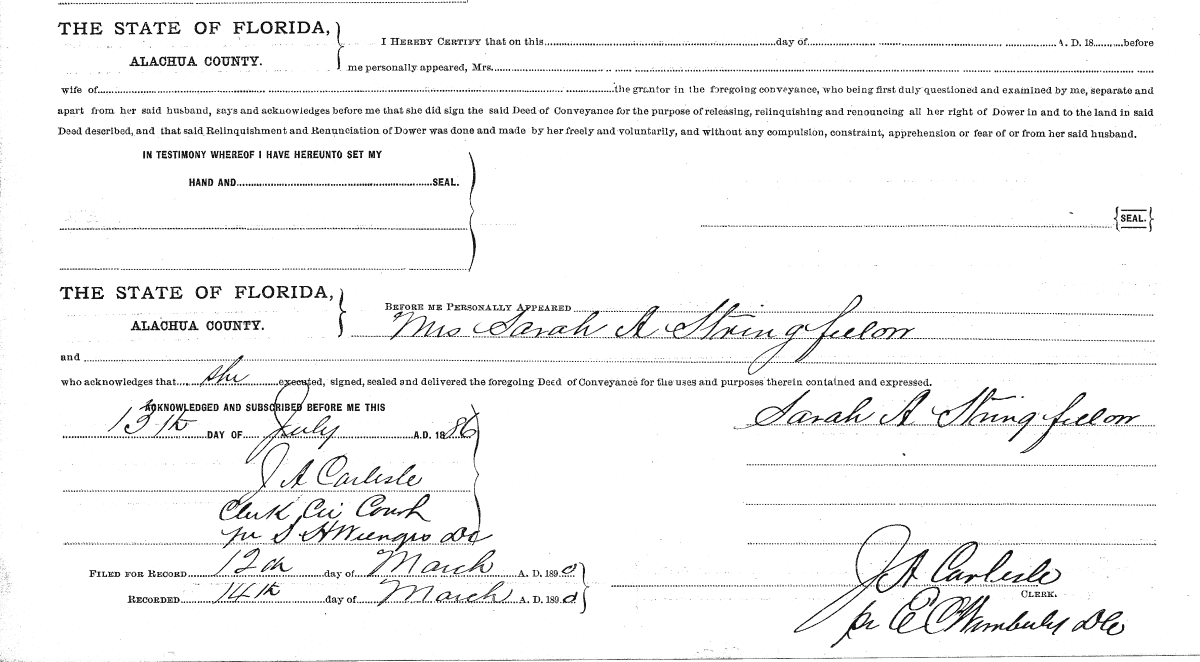 THE STATE OF FLORIDA,
ALACHUA COUNTY.
I HEREBY CERTIFY that on this day of A. D. 18 before
me personally appeared, Mrs.
wife of the grantor in the foregoing conveyance, who being first duly questioned and examined by me, separate and
apart from her said husband, says and acknowledges before me that she did sign the said Deed of Conveyance for the purpose of releasing, relinquishing and renouncing all her right of Dower in and to the land in said
Deed described, and that said Relinquishment and Renunciation of Dower was done and made by her freely and voluntarily, and without any compulsion, constraint, apprehension or fear of or from her said husband.
IN TESTIMONY WHEREOF I HAVE HEREUNTO SET MY
HAND AND SEAL.
SEAL.
THE STATE OF FLORIDA,
ALACHUA COUNTY.
BEFORE ME PERSONALLY APPEARED
Mrs Sarah A Stringfellow
and
who acknowledges that she executed, signed, sealed and delivered the foregoing Deed of Conveyance for the uses and purposes therein contained and expressed.
ACKNOWLEDGED AND SUBSCRIBED BEFORE ME THIS
13th DAY OF July A.D. 1886
Sarah A Stringfellow
J A Carlisle
Clerk Cir Court
pr S H DC
FILED FOR RECORD 12th day of March A. D. 1890
RECORDED 14th day of March A. D. 1890
J A Carlisle
CLERK.
pr E C Wimberly DC